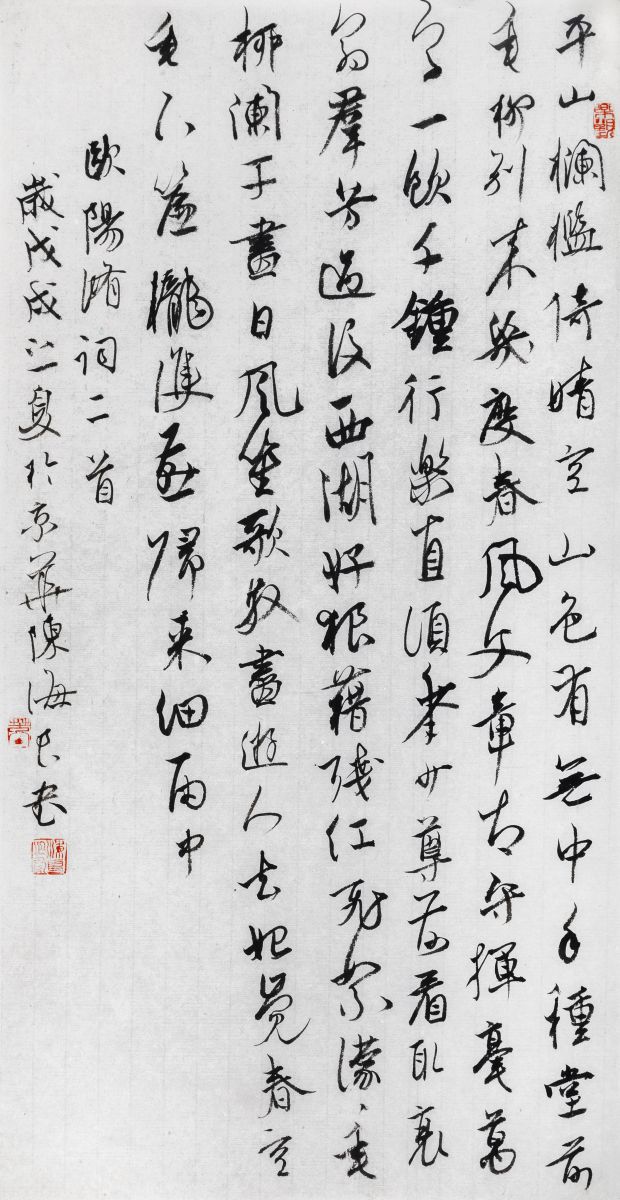 平山欄檻倚晴空山色有無中手種堂前
垂柳別來幾度春風文章太守揮毫萬
字一飲千鍾行樂直須年少尊前看取衰
翁羣芳過後西湖好狼藉殘紅飛絮濛〻垂
柳瀾干盡日風笙歌散盡遊人去始覺春空
垂下簾櫳雙燕歸來細雨中
歐陽脩詞二首
歲戊戌之夏於京華陳海良書